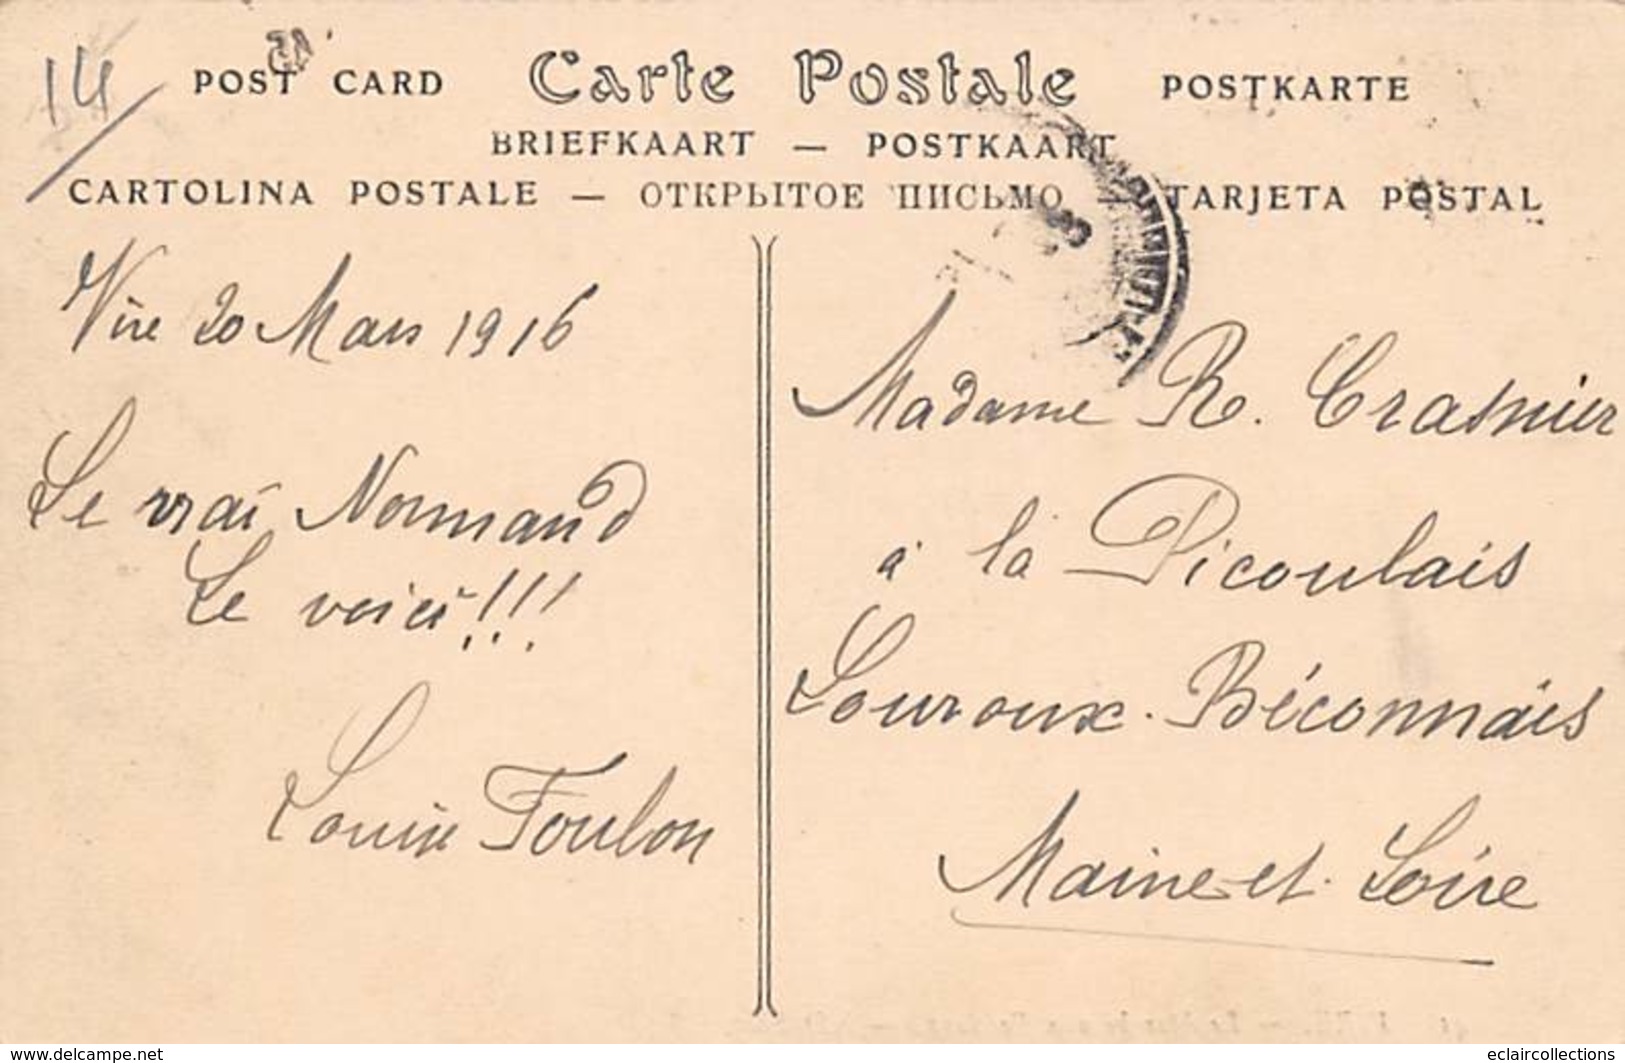 14
POST CARD Carte Postale POSTKARTE
BRIEFKAART — POSTKAART
CARTOLINA POSTALE — ОТКРЫТОЕ ПИСЬМО — TARJETA POSTAL
Vire 20 Mars 1916
Le vrai Normand
Le voici!!!
Louise Foulon
Madame R. Crasnier
à la Picoulais
Louroux-Béconnais
Maine-et-Loire
www.delcampe.net
eclaircollections